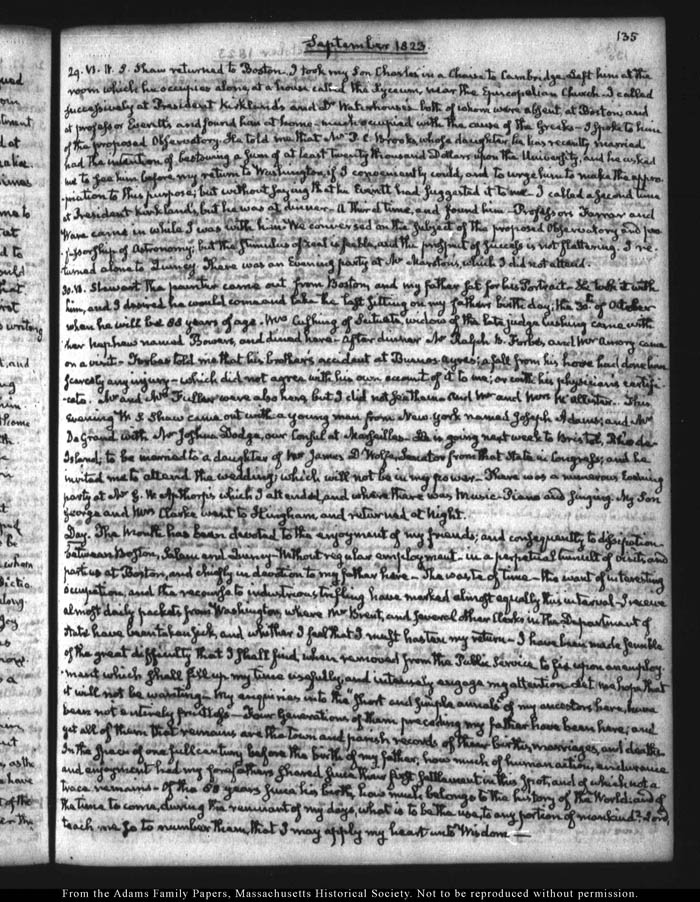 135
September 1823
29. VI. W. S. Shaw returned to Boston. I took my Son Charles in a Chaise to Cambridge. Left him at the
room which he occupies alone, at a house called the Lyceum, near the Episcopalian Church. I called
successively at President Kirkland's and Dr Waterhouse's both of whom were absent, at Boston, and
at professor Everett's and found him at home. much occupied with the cause of the Greeks. I spoke to him
of the proposed Observatory. He told me that Mr P. C. Brooks, whose daughter he has recently married
had the intention of bestowing a sum of at least twenty thousand Dollars upon the University, and he asked
me to see him before my return to Washington, if I conveniently could, and to urge him to make the appro-
priation to this purpose; but without saying that he Everett had suggested it to me. I called a second time
at President Kirkland's, but he was at dinner. A third time, and found him. Professors Farrar and
Ware came in while I was with him. We conversed on the subject of the proposed Observatory and pro-
fessorship of Astronomy; but the stimulus of zeal is feeble, and the prospect of success is not flattering. I re-
turned alone to Quincy. There was an Evening party at Mr Marston's, which I did not attend.
30. VI. Stewart the painter came out from Boston and my father sat for his Portrait. He took it with
him, and I desired he would come and take the last sitting on my father's birth day; the 30th of October
when he will be 88 years of age. Mrs Cushing of Scituate, widow of the late judge Cushing came with
her Nephew named Bowers, and dined here. After dinner Mr Ralph B. Forbes, and Mr Amory came
on a visit. Forbes told me that his brother's accident at Buenos ayres; a fall from his horse had done him
scarcely any injury. which did not agree with his own account of it to me; or with his physician's certifi-
cate. Mr and Mrs Fuller were also here but I did not see them. and Mr and Mrs. This
Evening W. S Shaw came out with a young man from New-york named Joseph Adams; and Mr
De Grand with Mr Joshua Dodge, our Consul at Marseilles. He is going next week to Bristol, Rhode-
Island, to be married to a daughter of Mr James D'Wolfe, Senator from that State in Congress; and he
invited me to attend the wedding; which will not be in my power. There was a numerous Evening
party at Mr G. W. Apthorp's which I attended, and where there was Music. Piano and singing. My Son
George and Mrs Clarke went to Hingham, and returned at Night.
Day. The Month has been devoted to the enjoyment of my friends; and consequently to dissipation
between Boston, Salem and Quincy. Without regular employment. in a perpetual tumult of visits and
parties at Boston, and chiefly in devotion to my father here. The waste of time. the want of interesting
occupation, and the recourse to industrious trifling have marked almost equally this interval. I receive
almost daily packets from Washington, where Mr Brent, and several other Clerks in the Department of
State have been taken sick, and whither I feel that I must hasten my return. I have been made sensible
of the great difficulty that I shall find, when removed from the Public Service to fix upon an employ-
ment which shall fill up my time usefully, and intensely engage my attention. Let me hope that
it will not be wanting. My enquiries into the short and simple annals of my ancestors here, have
been not entirely fruitless. Four Generations of them preceding my father have been here; and
yet all of them that remains are the town and parish records of their births, marriages, and deaths.
In the space of one full century before the birth of my father, how much of human action, endurance
and enjoyment had my forefathers shared since their first settlement in this spot; and of which not a
trace remains. Of the 88 years since his birth, how much belongs to the history of the World; and of
the time to come, during the remnant of my days, what is to be the use, to any portion of mankind? Lord,
teach me so to number them, that I may apply my heart unto Wisdom.
From the Adams Family Papers, Massachusetts Historical Society. Not to be reproduced without permission.